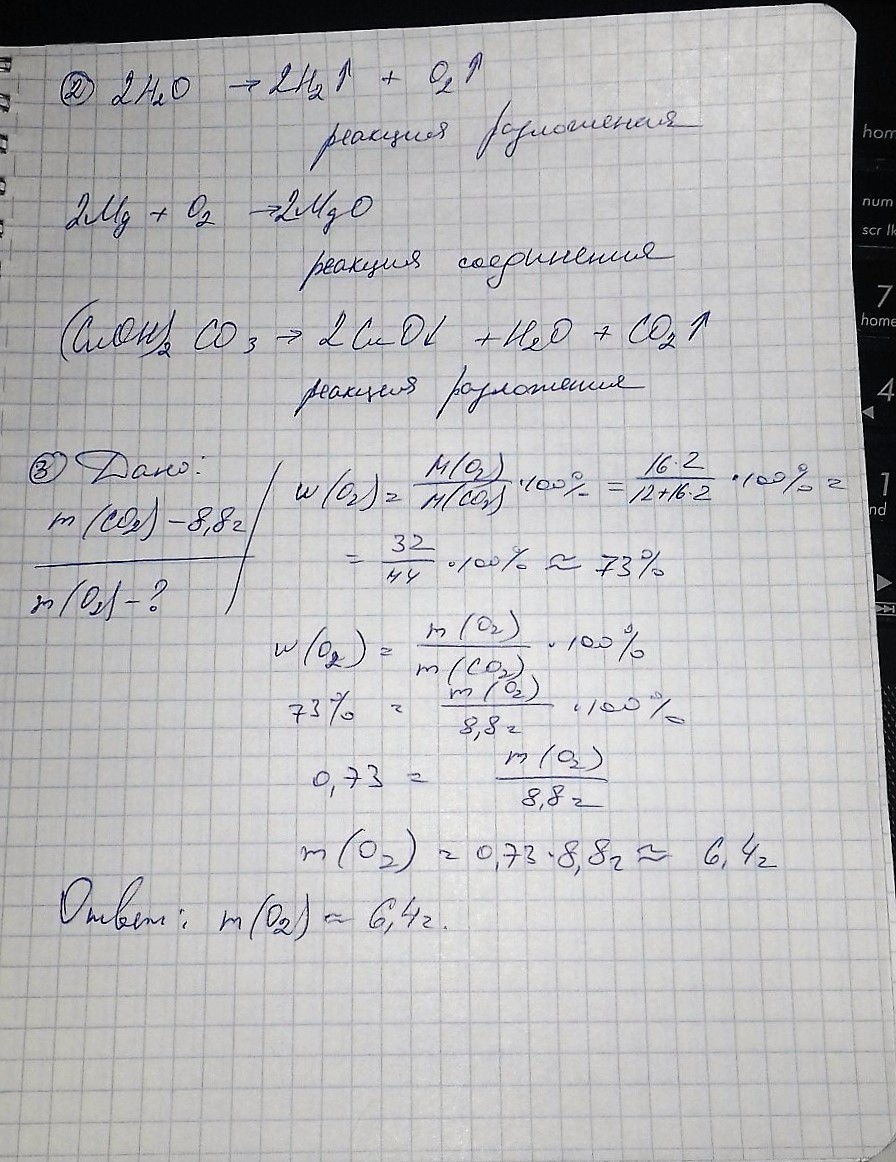 ② 2H₂O → 2H₂↑ + O₂↑
реакция разложения
2Mg + O₂ → 2MgO
реакция соединения
(CuOH)₂ CO₃ → 2CuO↓ + H₂O + CO₂↑
реакция разложения
③ Дано:
m(CO₂) – 8,8г
m(O₂) – ?
w(O₂) = M(O₂)/M(CO₂) · 100% = 16·2/12+16·2 · 100% =
= 32/44 · 100% ≈ 73%
w(O₂) = m(O₂)/m(CO₂) · 100%
73% = m(O₂)/8,8г · 100%
0,73 = m(O₂)/8,8г
m(O₂) = 0,73·8,8г ≈ 6,4г
Ответ: m(O₂) ≈ 6,4г.
home
num
scr lk
7
home
4
1
nd